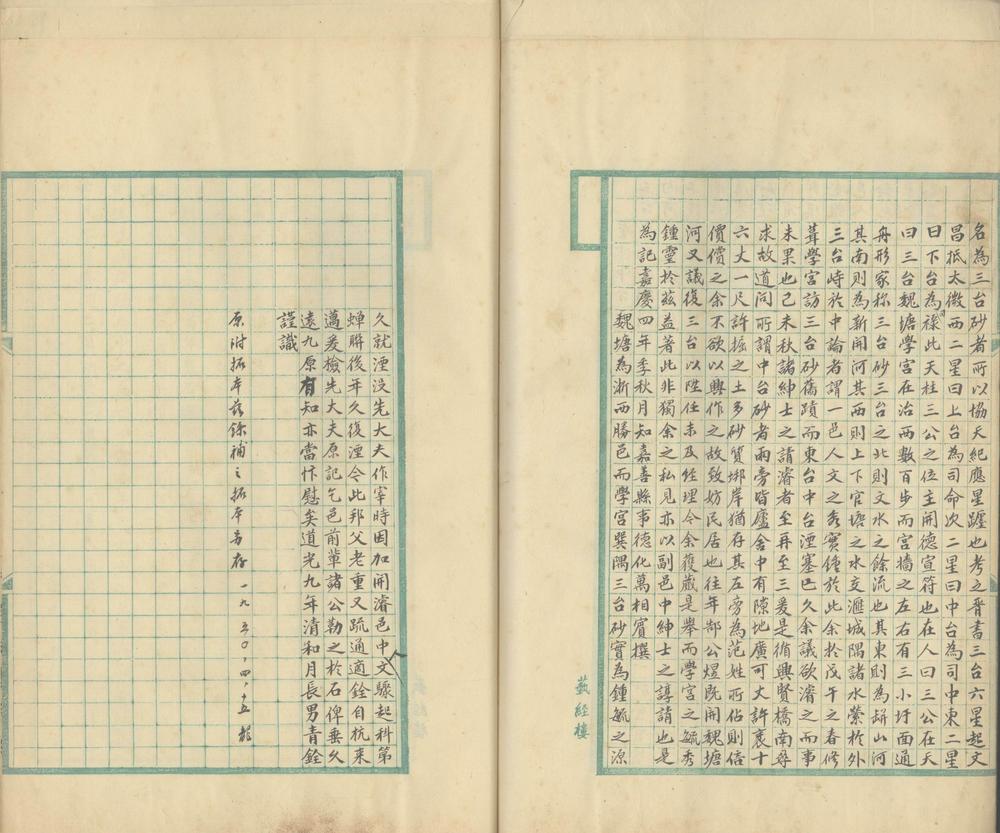 名為三台砂者所以協天紀應星躔也考之晋書三台六星起文
昌抵太微西二星曰上台為司命次二星曰中台為司中東二星
曰下台為祿此天柱三公之位主開德宣符也在人曰三公在天
曰三台魏塘學宮在治西數百步而宮墻之左右有三小圩面通
舟形家称三台砂三台之北則文水之餘流也其東則為缾山河
其南則為新開河其西則上下官塘之水交滙城隅諸水縈於外
三台峙於中論者謂一邑人文之秀實鍾於此余於戊午之春修
葺學宮訪三台砂舊蹟而東台中台湮塞已久余議欲濬之而事
未果也己未秋諸紳士之請濬者至再至三爰是循興賢橋南尋
求故道问所謂中台砂者兩旁皆廬舍中有隙地廣可丈許袤十
六丈一尺許掘之土多砂質塝岸猶存其左旁為范姓所佔則倍
價償之余不欲以興作之故致妨民居也往年郜公煜既開魏塘
河又議復三台以陞任未及经理今余蕆是舉而學宮之毓秀
鍾靈於茲益著此非獨余之私見亦以副邑中紳士之諄請也是
為記嘉慶四年季秋月知嘉善縣事德化萬相賓撰
魏塘為浙西勝邑而學宮巽隅三台砂實為鍾毓之源
蓺經樓
久就湮没先大夫作宰時因加開濬邑中文驟起科第
蟬聨後年久復湮今此邦父老重又疏通適銓自杭来
邁爰撿先大夫原記乞邑前輩諸公勒之於石俾垂久
遠九原有知亦當忭慰矣道光九年清和月長男青銓
謹識
原附拓本蔎錄補之拓本另存 一九五〇·四·十五 龍